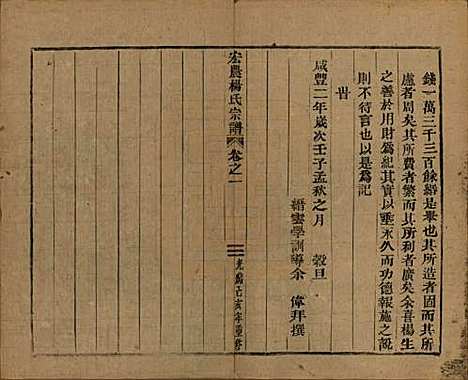 錢一萬三千三百餘緡是舉也其所造者固而其所
慮者周矣其所費者繁而其所利者廣矣余喜楊生
之善於用財為紀其實以垂永久而其功德報施之說
則不待言也以是為記
旹
咸豐二年歲次壬子孟秋之月 穀旦
縉雲學訓導余 偉拜撰
宏農楊氏宗譜 卷之一
光緒己亥年重修